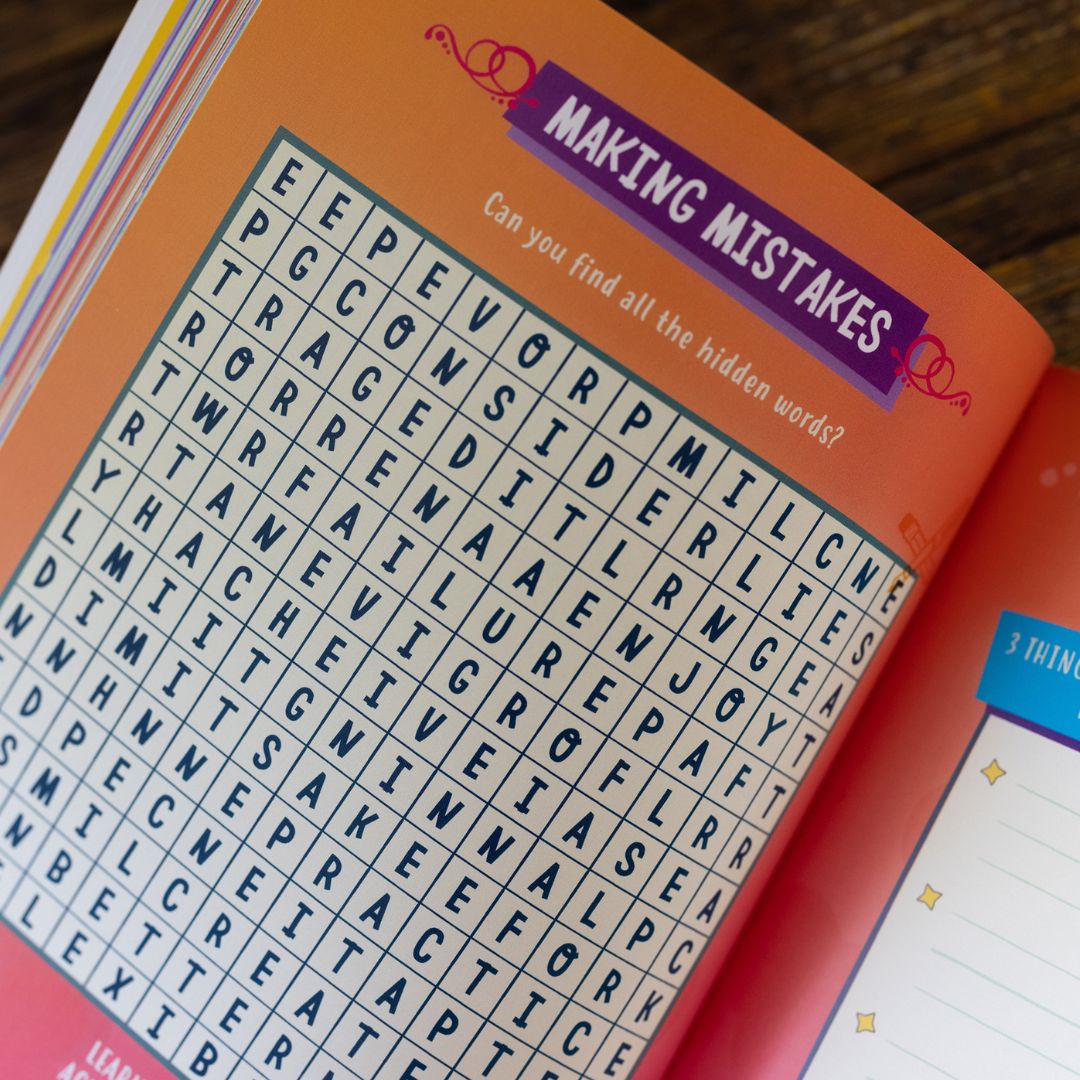 MAKING MISTAKES
Can you find all the hidden words?
E E P E V O R P M I L C N E
P G C O N S I D E R L I E S
T R A G E D I T L R N G E A
R O R R E N A A E N J O Y T
T W R F A I L U R E P A F T
R T A N E V I G R O F L R R
Y H A C H E I V E I A S E A
L M I I T G N I N N A L P C
D I M I T S A K E E F O R K
N N H N N E P R A C T I C E
D P E C N E I T A P T
S M I L C R E A T E
N B E T T E R
L E X I B
3 THING